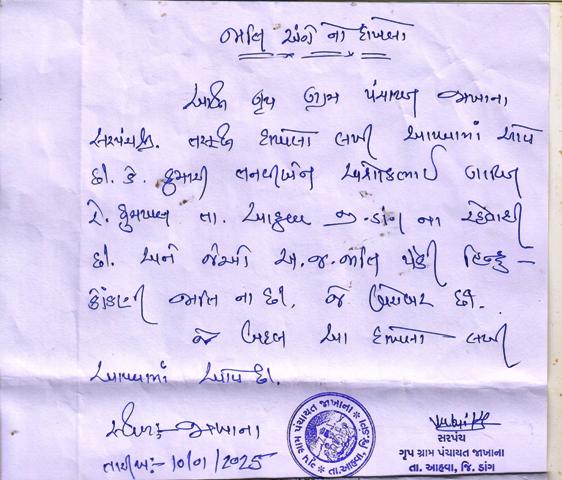 જાતિ અંગે નો દાખલો
આથી ગૃપ ગ્રામ પંચાયત જાખાના
સરપંચશ્રી. તરફથી દાખલો લખી આપવામાં આવે
છે. કે. કુમારી અશોકભાઈ
રે. તા. આહવા જી. ડાંગ ના રહેવાસી
છે. અને જેઓ અ.જ.જાતિ પૈકી હિન્દુ -
કોંકણી જાતિ ના છે. જે બરોબર છે.
જે બદલ આ દાખલો લખી
આપવામાં આવે છે.
સ્થળ:- જાખાના
તારીખ:- 10/01/2025
ગૃપ ગ્રામ પંચાયત જાખાના
તા.આહવા, જિ.ડાંગ
સરપંચ
ગૃપ ગ્રામ પંચાયત જાખાના
તા. આહવા, જિ. ડાંગ